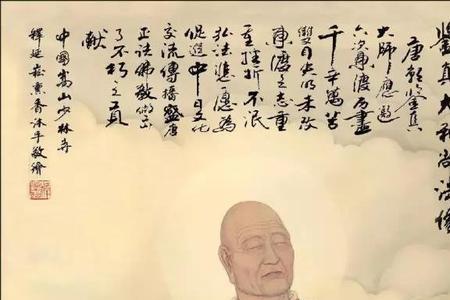 鑒真大和尚法像
唐朝鑒真
大師應邀
六次東渡歷盡
千辛萬苦
雙目失明未改
東渡之志重
挫折不泯
弘法
促進中日文化
交流傳播盛唐
正法佛教做出
了不朽之貢
獻
中國嵩山少林寺
釋延熏香沐手敬繪